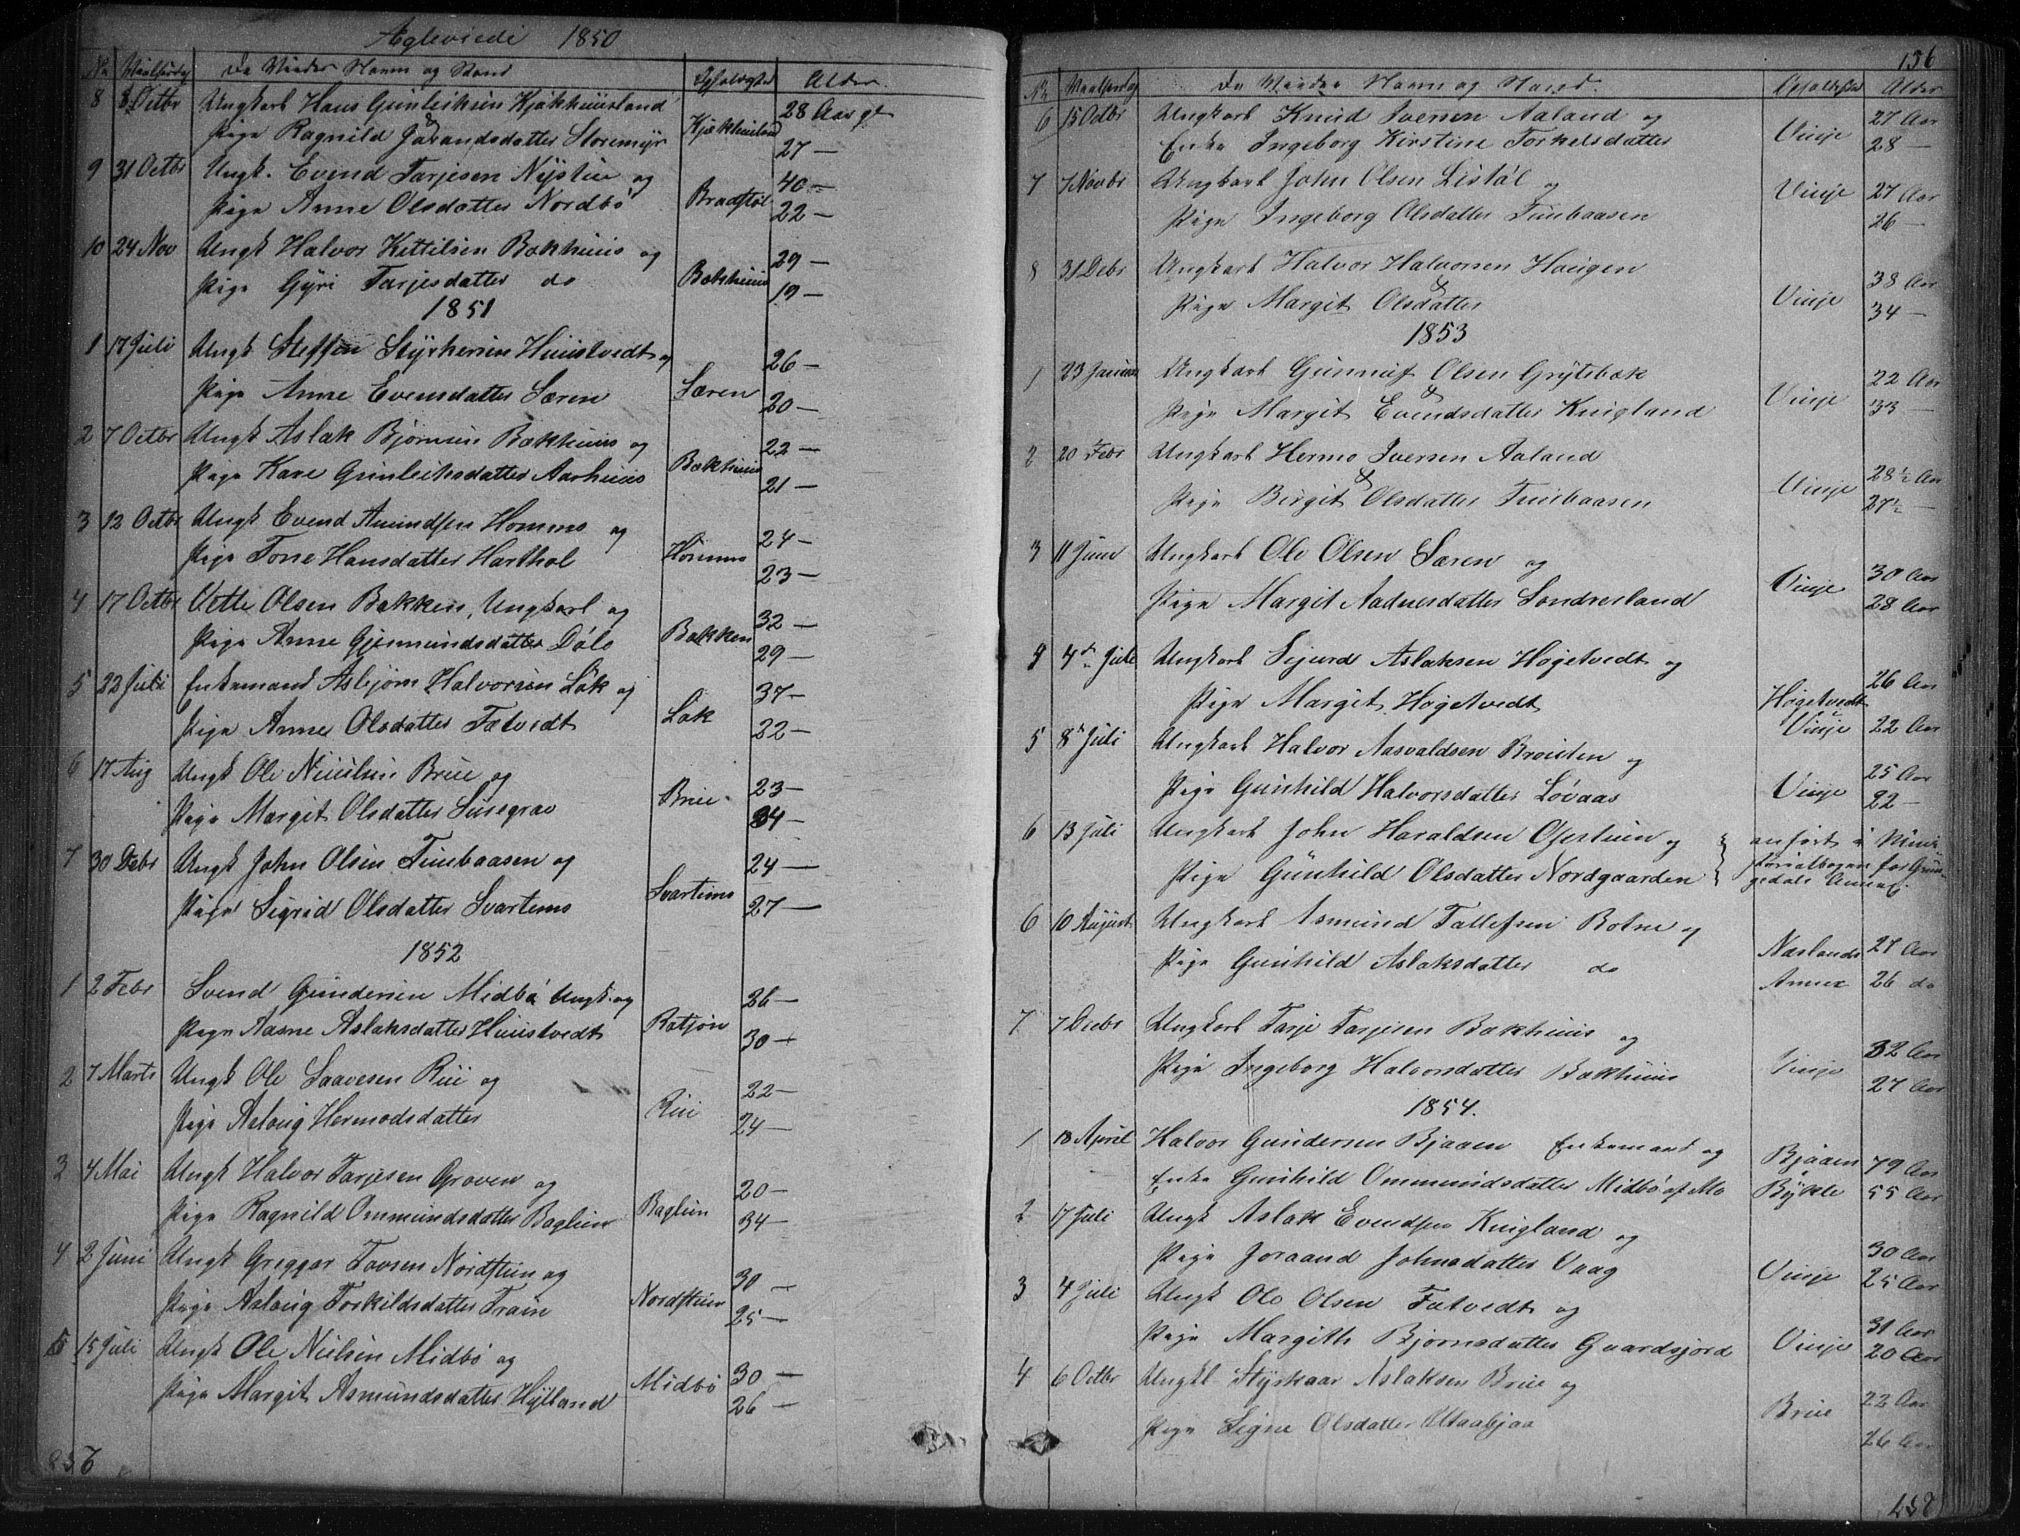 Ægteviede 1850
No Vielsesdag De Viedes Navne og Stand Opholdsted Alder
8 8 Octbr Ungkarl Hans Gunleiksen Kjækhuusland & Kjækhuusland 28 Aar gl
Pige Ragnild Jorandsdatter Storemyr 27 —
9 31 Octbr Ungk. Evend Tarjesen Nystue og Bradstøl 40 —
Pige Anne Olsdatter Nordbø 22 —
10 24 Nov Ungk Halvor Kettilsen Bækhuus og Bækhuus 29 —
Pige Gyri Tarjesdatter do 19 —
1851
1 17 Juli Ungk Steffen Styrkersen Huustvedt og Særen 26 —
Pige Anne Evensdatter Særen 20 —
2 7 Octbr Ungk Aslak Bjørnsen Bækhuus og Bækhuus 22 —
Pige Kare Gunleiksdatter Aarhuus 21 —
3 12 Octbr Ungk Evend Amundsen Hommo og Hommo 24 —
Pige Tone Hansdatter Harthol 23 —
4 17 Octbr Vetle Olsen Bakken, Ungkarl og Bakken 32 —
Pige Anne Gjermundsdatter Dale 29 —
5 22 Juli Enkemand Asbjørn Halvorsen Løk og Løk 37 —
Pige Anne Olsdatter Tætvedt 22 —
6 17 Aug Ungk Ole Nielsen Brue og Brue 23 —
Pige Margit Olsdatter Susegrav 34 —
7 30 Debr Ungk John Olsen Tuubaasen og Svartems 24 —
Pige Sigrid Olsdatter Svartems 27 —
1852
1 2 Febr Svend Gundersen Midbø Ungk. og Botjøn 36 —
Pige Aasne Aslaksdatter Huustvedt 30 —
2 7 Marts Ungk Ole Saavesen Rui og Rui 22 —
Pige Aslaug Hermodsdatter 24 —
3 4 Mai Ungk Halvor Tarjesen Groven og Baglein 20 —
Pige Ragnild Ommundsdatter Baglein 34 —
4 2 Juni Ungk Greggar Tovsen Nordstuen og Nordstuen 30 —
Pige Aslaug Torkildsdatter Train 25 —
5 15 Juli Ungk Ole Nielsen Midbø og Midbø 30 —
Pige Margit Asmundsdatter Hylland 26 —
156
No Vielsesdag De Viedes Navne og Stand. Opholdsted Alder
6 15 Octbr Ungkarl Knud Iversen Aaland og Vinje 27 Aar
Enke Ingeborg Kirstine Torkelsdatter 28 —
7 7 Novbr Ungkarl John Olsen Listøl og Vinje 27 Aar
Pige Ingeborg Olsdatter Tuubaasen 26 —
8 31 Debr Ungkarl Halvor Halvorsen Haugen & Vinje 38 Aar
Pige Margit Olsdatter 34 —
1853
1 23 Januar Ungkarl Gunnuf Olsen Grytebæk & Vinje 22 Aar
Pige Margit Evendsdatter Knigland 33 —
2 20 Febr Ungkarl Hermo Iversen Aaland & Vinje 28½ Aar
Pige Birgit Olsdatter Tuubaasen 27½ —
3 11 Juni Ungkarl Ole Olsen Særen og Vinje 30 Aar
Pige Margit Aadnesdatter Sondresland 28 Aar
4 4de Juli Ungkarl Sjurd Aslaksen Høgetvedt og Høgetvedt 26 Aar
Pige Margit Høgetvedt Vinje 22 Aar
5 8d Juli Ungkarl Halvor Aasvaldsen Brouden og Vinje 25 Aar
Pige Gunhild Halvorsdatter Løvaas 22 —
6 13 Juli Ungkarl John Haraldsen Øfertuun og anført i Mini-
Pige Gunhild Olsdatter Nordgaarden sterialbogen for Grun-
gedals Annex
6 10 August Ungkarl Asmund Tallefsen Botne og Næslands 27 Aar
Pige Gunhild Aslaksdatter do Annex 26 do
7 7 Decbr Ungkarl Tarje Tarjesen Bækhuus og Vinje 32 Aar
Pige Ingeborg Halvorsdatter Bækhuus 27 Aar
1854.
1 18 April Halvor Gundersen Bjaaen Enkemand og Bjaaen 79 Aar
Enke Gunhild Ommundsdatter Midbø af Mo Bykle 55 Aar
2 17 Juli Ungk Aslak Evendsen Knigland og 30 Aar
Pige Joraand Johnsdatter Vaag Vinje 25 Aar
3 4 Juli Ungk Ole Olsen Tætvedt og 31 Aar
Pige Margith Bjørnsdatter Gaardsjord Vinje 20 Aar
4 6 Octbr Ungkl Styrkaar Aslaksen Brue og Brue 22 Aar
Pige Signe Olsdatter Utaabjaa 26 Aar